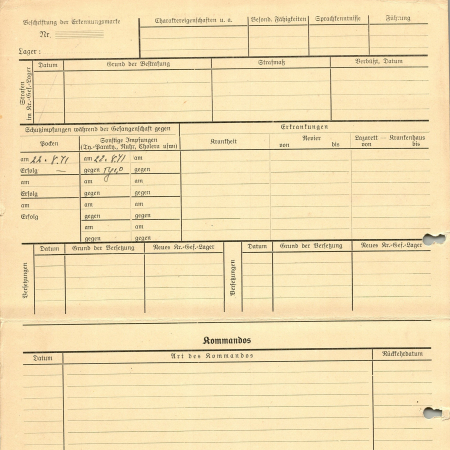 Beschriftung der Erkennungsmarke
Nr.
Lager:
Charaktereigenschaften u. a.
Besond. Fähigkeiten
Sprachkenntnisse
Führung
Strafen im Kr.-Gef.-Lager
Datum
Grund der Bestrafung
Strafmaß
Verbüßt, Datum
Schutzimpfungen während der Gefangenschaft gegen
Erkrankungen
Pocken
Sonstige Impfungen
(Ty.-Paraty., Ruhr, Cholera usw.)
Krankheit
Revier
von bis
Lazarett — Krankenhaus
von bis
am 22.8.41 am 22.8.41 am
Erfolg — gegen gegen
am am am
Erfolg gegen gegen
am am am
Erfolg gegen gegen
am am
gegen gegen
Versetzungen
Datum
Grund der Versetzung
Neues Kr.-Gef.-Lager
Versetzungen
Datum
Grund der Versetzung
Neues Kr.-Gef.-Lager
Kommandos
Datum
Art des Kommandos
Rückkehrdatum